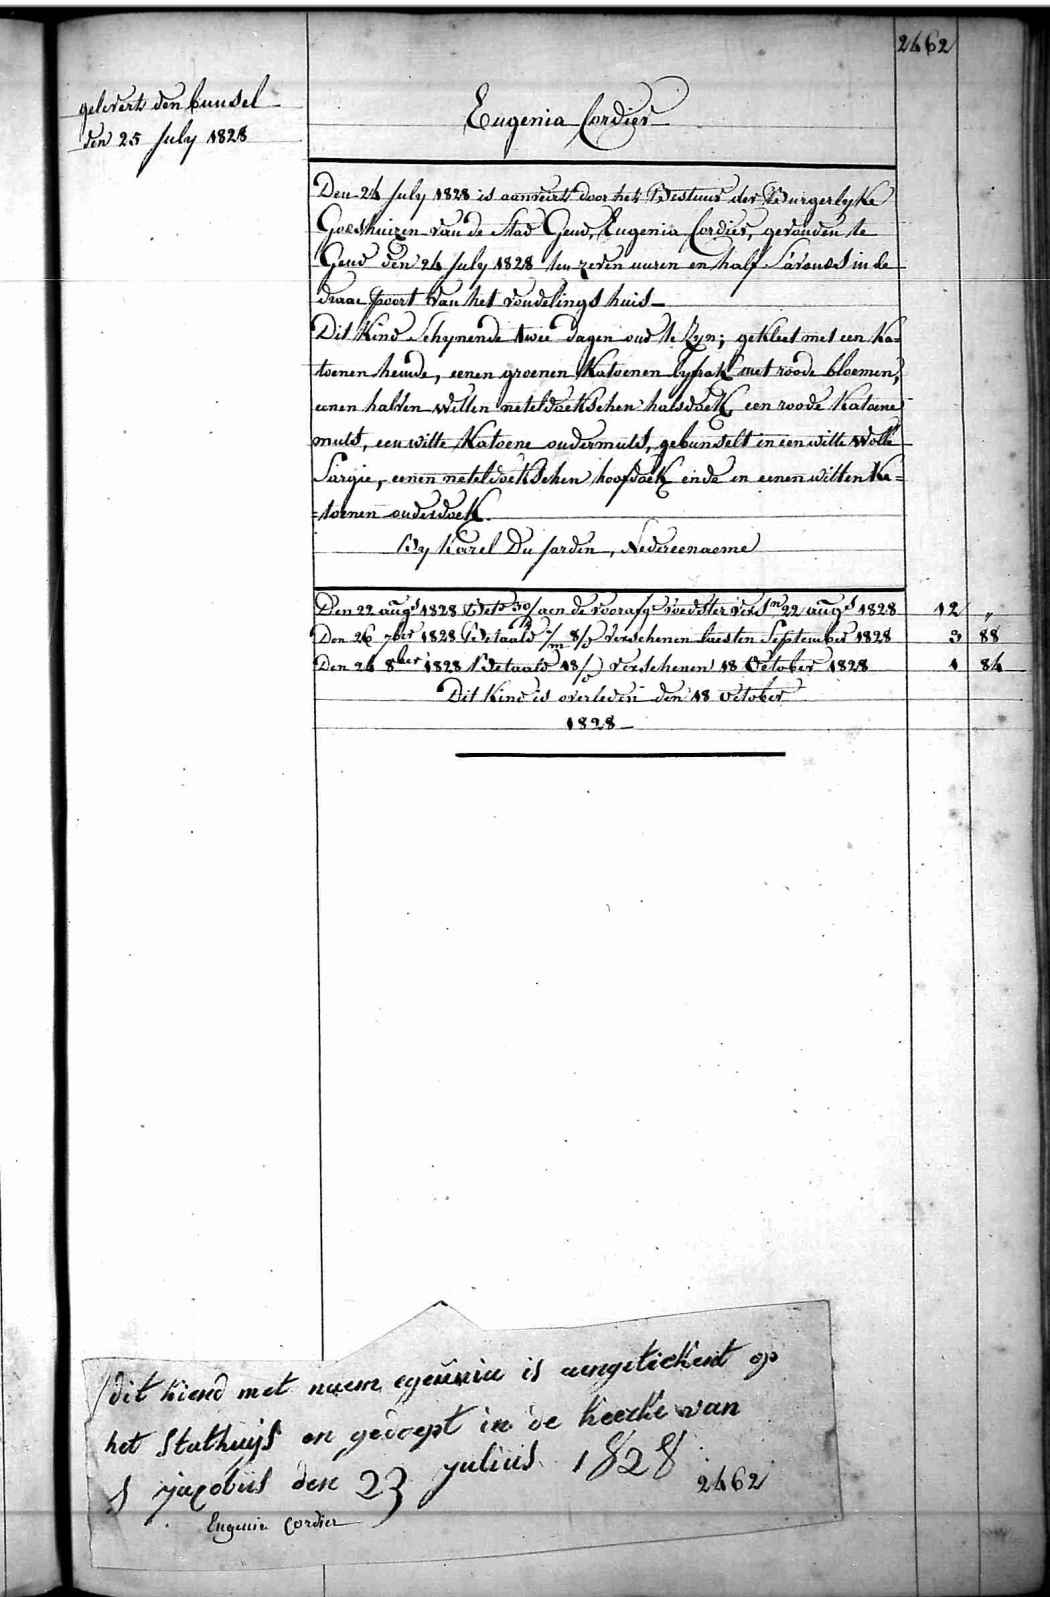 2462
gelevert den bunsel
den 25 July 1828
Eugenia Cordier
Den 24 July 1828 is aanveirt door het Bestuur der Burgerlyke
Godshuizen van de Stad Gend, Eugenia Cordier, gevonden te
Gend den 24 July 1828 ten zeven uuren en half S'avonds in de
draae poort van het vondelings huis
Dit Kind Schynende twee dagen oud te Zyn; gekleet met een Ka=
toenen hemde, eenen groenen Katoenen lyfrok met roode bloemen,
eenen halven witten neteldoekschen halsdoek, een roode Katoene
muts, een witte Katoene ondermuts, gebunselt in een witte Wolle
Sargie, eenen neteldoekschen hoofdoek ende in eenen witten Ka=
=toenen onderdoek.
By Karel Du Jardin, Nedereename
Den 22 augs 1828 Bete 30/ aen de voorafge voedster versn 22 augs 1828 12 "
Den 26 7ber 1828 Betaald 8/ verschenen laesten September 1828 3 88
Den 24 8ber 1828 Betaald 18/ verschenen 18 October 1828 1 84
Dit Kind is overleden den 18 October
1828
dit kiend met naem egeunia is aengetickent op
het Stathuijs en gedoept in de keerke van
S jacobus den 23 julius 1828
2462
Eugenie Cordier